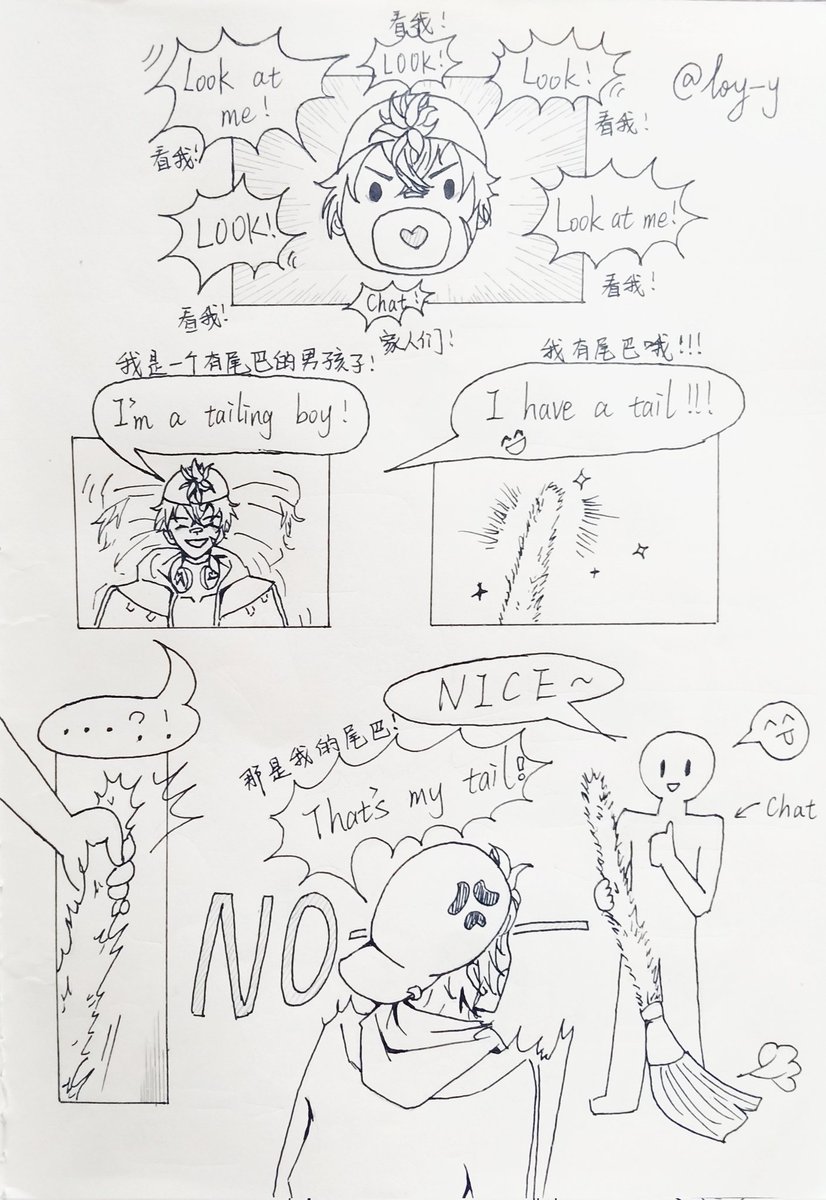 看我!
Look at
me!
LOOK!
Look!
@loy-y
看我!
看我!
LOOK!
Look at me!
看我!
看我!
Chat!
家人们!
我是一个有尾巴的男孩子!
I'm a tailing boy!
我有尾巴哦!!!
I have a tail!!!
...?!
NICE~
那是我的尾巴!
That's my tail!
Chat
NO--